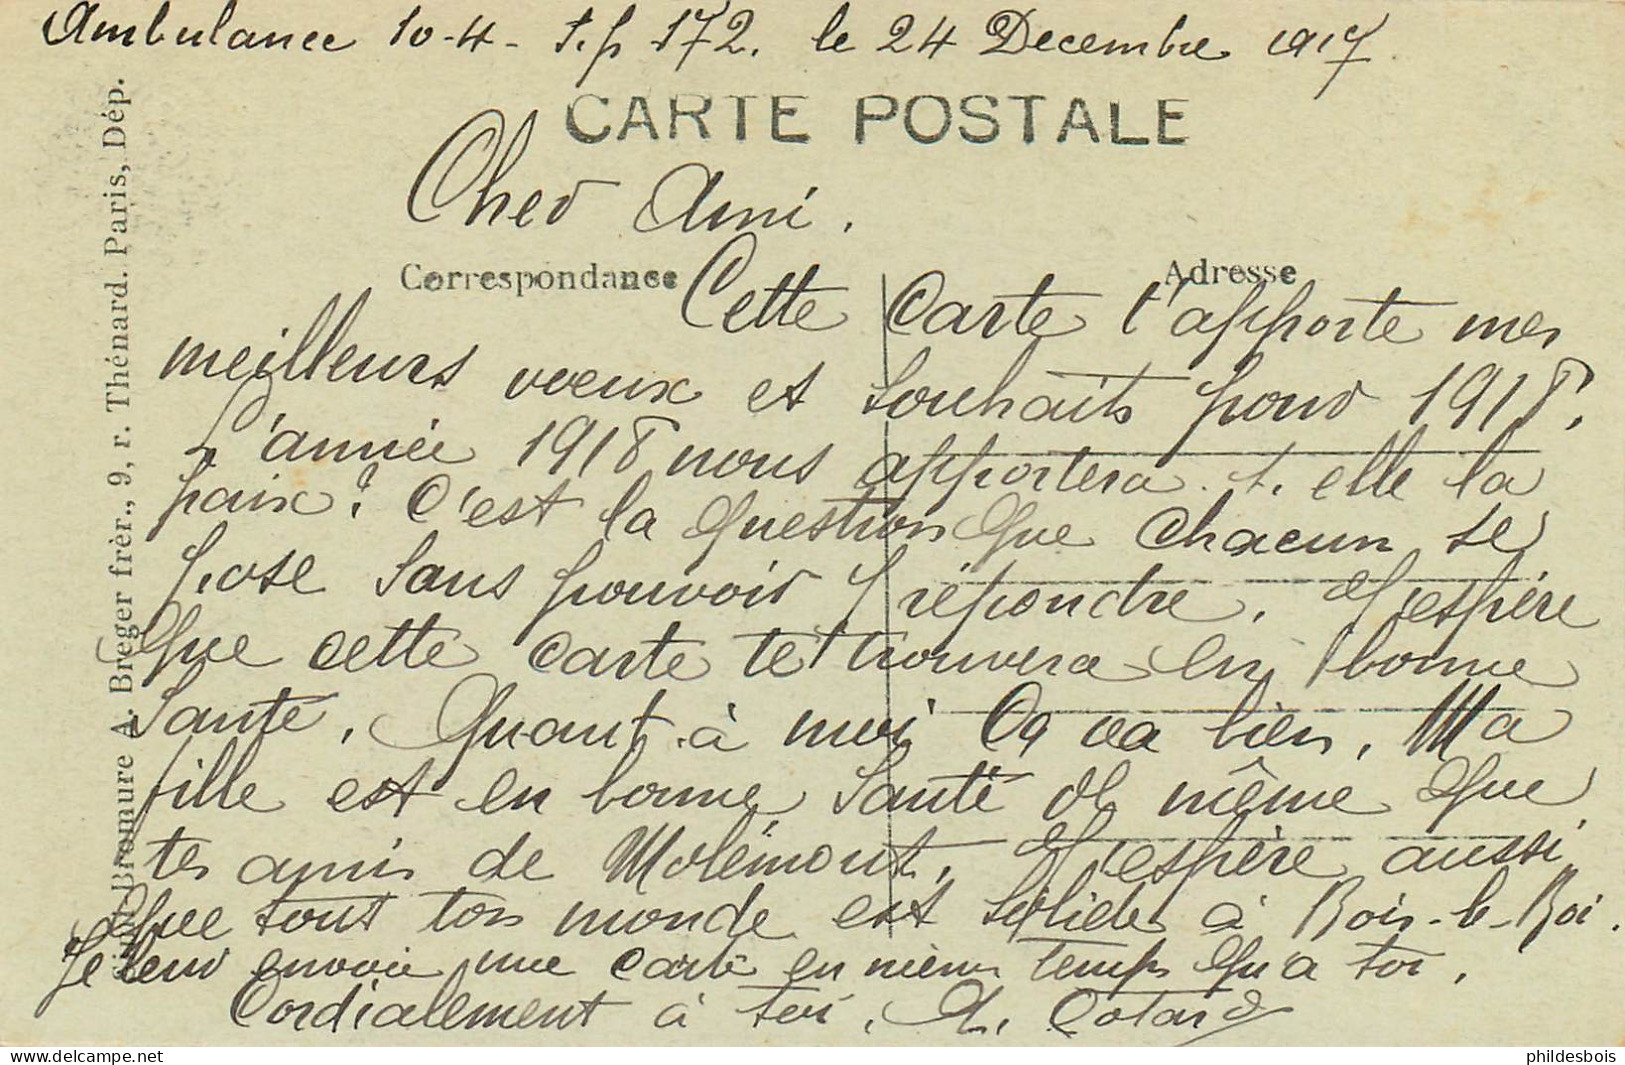 Ambulance 10-4 - S.p 172. le 24 Decembre 1917
CARTE POSTALE
Cher Ami.
Correspondance
Adresse
Cette Carte t'apporte mes
meilleurs voeux et souhaits pour 1918.
L'année 1918 nous apportera-t-elle la
paix? C'est la question que chacun se
pose sans pouvoir y répondre. J'espère
que cette carte te trouvera en bonne
santé. Quant à moi ça va bien. Ma
fille est en bonne santé de même que
tes amis de Molémont. J'espère aussi
que tout ton monde est solide à Bois-le-Roi.
Je leur envoie une carte en même temps qu'a toi.
Cordialement à toi. A. Cotard
Bromure A. Breger frèr., 9, r. Thénard. Paris, Dép.
phildesbois